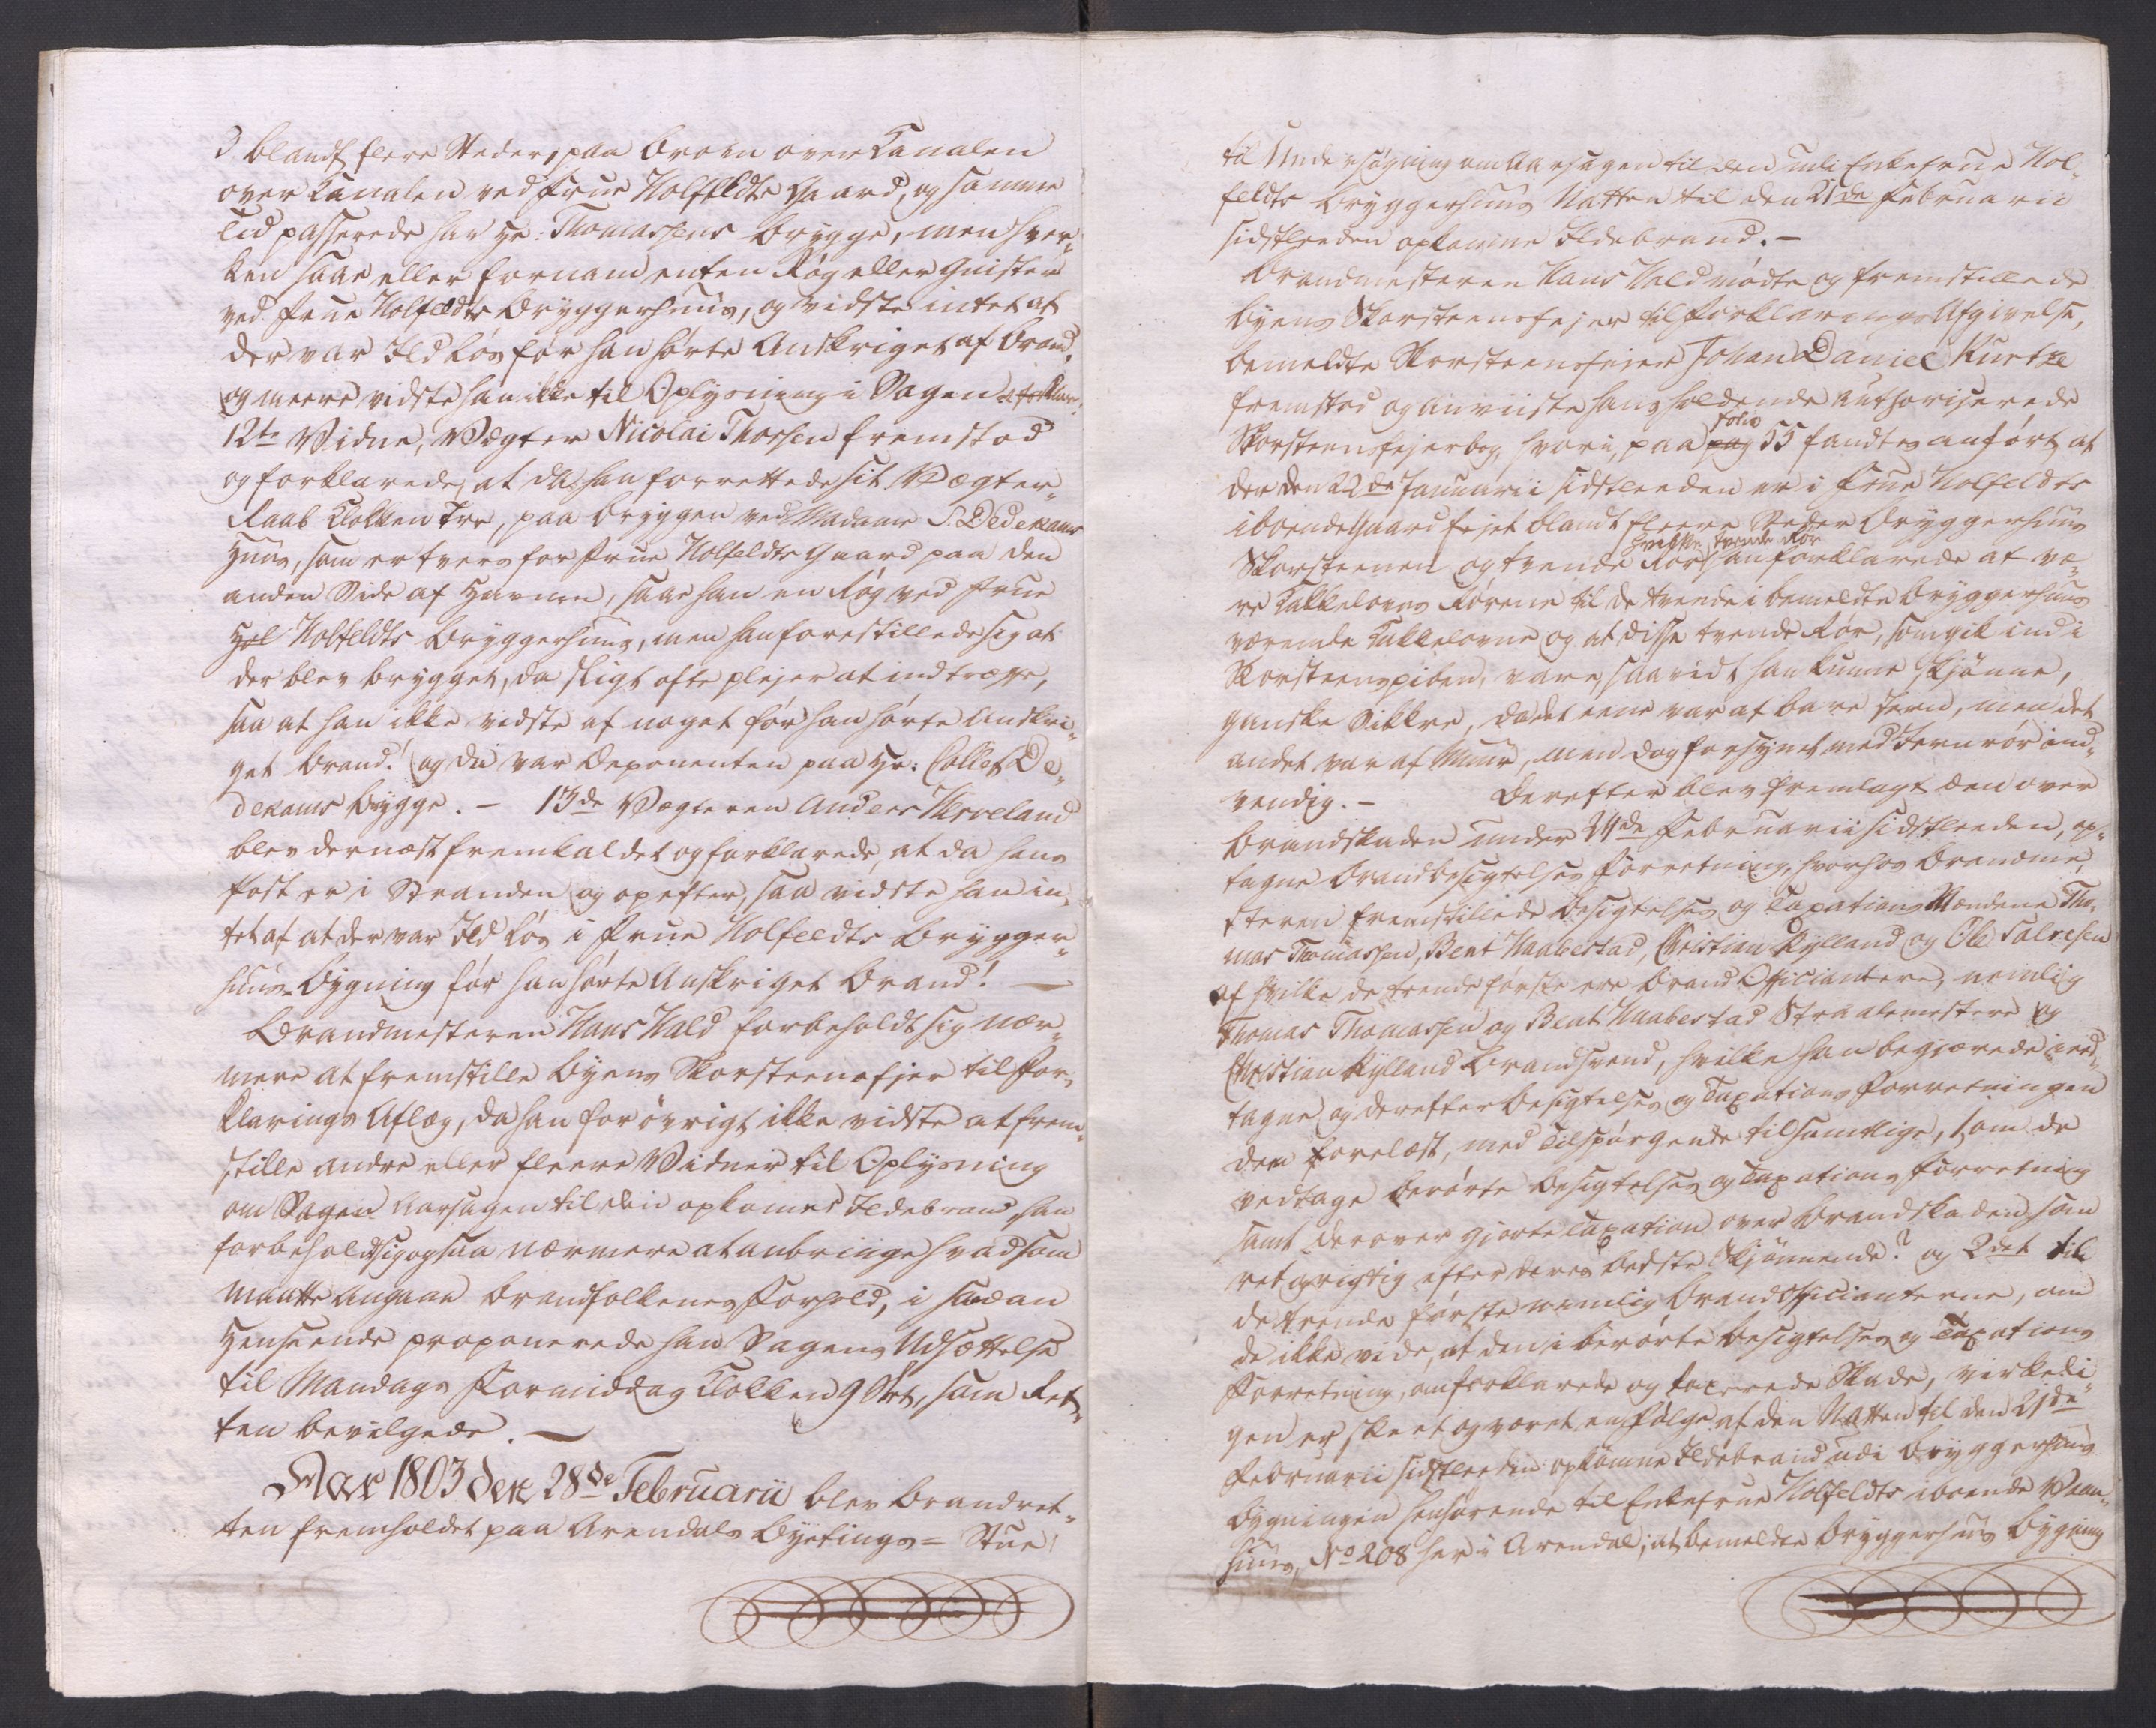 I blandt flere Steder, paa Broen over Canalen
over Canalen ved Frue Holfeldts Gaard, og samme
Tid passerede han Hr: Thomassens Brygge, men hver-
ken saae eller fornam enten Røg eller Gnister
ved Frue Holfeldts Bryggerhuus, og vidste intet at
der var Ild Løs før han hørte Anskriget af Brand,
og meere vidste han ikke til Oplysning i Sagen
12te Vidne, Vægter Nicolai Thorsen fremstod
og forklarede, at da han forrettede sit Vægter-
Raab Klokken Tre, paa Bryggen ved Madame S. Dedekams
Huus, som er tvers for Frue Holfeldts Gaard paa den
anden Side af Havnen, saae han en Røg ved Frue
Hol Holfeldts Bryggerhuus, men han forestillede sig at
der blev brygget, da sligt ofte plejer at indtræffe,
saa at han ikke vidste af noget før han hørte Anskri-
get Brand! og da var Deponenten paa Hr: Collet De-
dekams Brygge. – 13de Vægteren Anders Herveland
blev dernæst fremkaldet og forklarede, at da hans
Post er i Stranden og opefter, saa vidste han in-
tet af at der var Ild Løs i Frue Holfeldts Brygger-
huus-Bygning før han hørte Anskriget Brand! –
Brandmesteren Hans Hald forbeholdt sig nær-
mere at fremstille Byens Skorsteensfejer til For-
klarings Aflæg, da han forøvrigt ikke vidste at frem-
stille andre eller fleere Vidner til Oplysning
om Sagen Aarsagen til den opkomne Ildebrand, han
forbeholdt sig ogsaa nærmere at anbringe hvad som
maatte angaae Brandfolkenes Forhold, i saadan
Henseende proponerede han Sagens Udsættelse
til Mandags Formiddag Klokken 9 Slet, som Ret-
ten bevilgede. –
Aar 1803 den 28de Februarii blev Brandret-
ten fremholdet paa Arendals Byetings-Stue
til Undersøgning om Aarsagen til den udi Enkefrue Hol-
feldts Bryggerhuus Natten til den 21de Februarii
sidstleeden opkomne Ildebrand. –
Brandmesteren Hans Hald mødte og fremstillede
Byens Skorsteensfejer til Forklarings Afgivelse,
bemeldte Skorsteensfejer Johan Daniel Kurtze
fremstod og anviiste hans holdende authoriserede
Skorsteensfejerbog, hvori, paa pag Folio 55 fandtes anført at
der den 22de Januarii sidstleeden er i Frue Holfeldts
iboende Gaard fejet blandt fleere Steder Bryggerhuus
Skorsteenen og tvende Rør hvilke tvende Rør han forklarede at væ-
re Kakkelovns Rørene til de tvende i bemeldte Bryggerhuus
værende Kakkelovne og at disse tvende Rør, som gik ind i
Skorsteenspiben, vare, saavidt han kunne skjønne,
ganske sikkre, da det eene var af bare Jern, men det
andet var af Muur, men dog forsynet med Jernrør ind-
vendig. – Derefter blev fremlagt den over
Brandskaden under 24de Februarii sidstleeden, op-
tagne Brandbesigtelses Forretning, hvorhos Brandme-
steren fremstillede Besigtelses og Taxations Mændene Tho-
mas Thomassen, Bent Haabestad, Christian Kylland og Ole Salvesen
af hvilke de trende første ere Brand Officiantere, nemlig
Thomas Thomassen og Bent Haabestad Straalemestere og
Christian Kylland Brandsvend, hvilke han begjærede i eed
tagne og derefter Besigtelses og Taxations Forretningen
dem forelæst, med Tilspørgende til samtlige, som de
vedtage berørte Besigtelses og Taxations Forretning
samt derover gjorte Taxation over Brandskaden, som
ret og rigtig efter deres bedste Skjønnende? og 2det til
de trende første nemlig Brandofficianterne, om
de ikke vide, at den i berørte Besigtelses og Taxations
Forretning, omforklarede og taxerede Skade, virkeli-
gen er skeet og været en Følge af den Natten til den 21de
Februarii sidstleeden opkomne Ildebrand udi Bryggerhuus
Bygningen henhørende til Enkefrue Holfeldts iboende Vaan-
huus, No 208 her i Arendal; at bemeldte Bryggerhuus Bygning